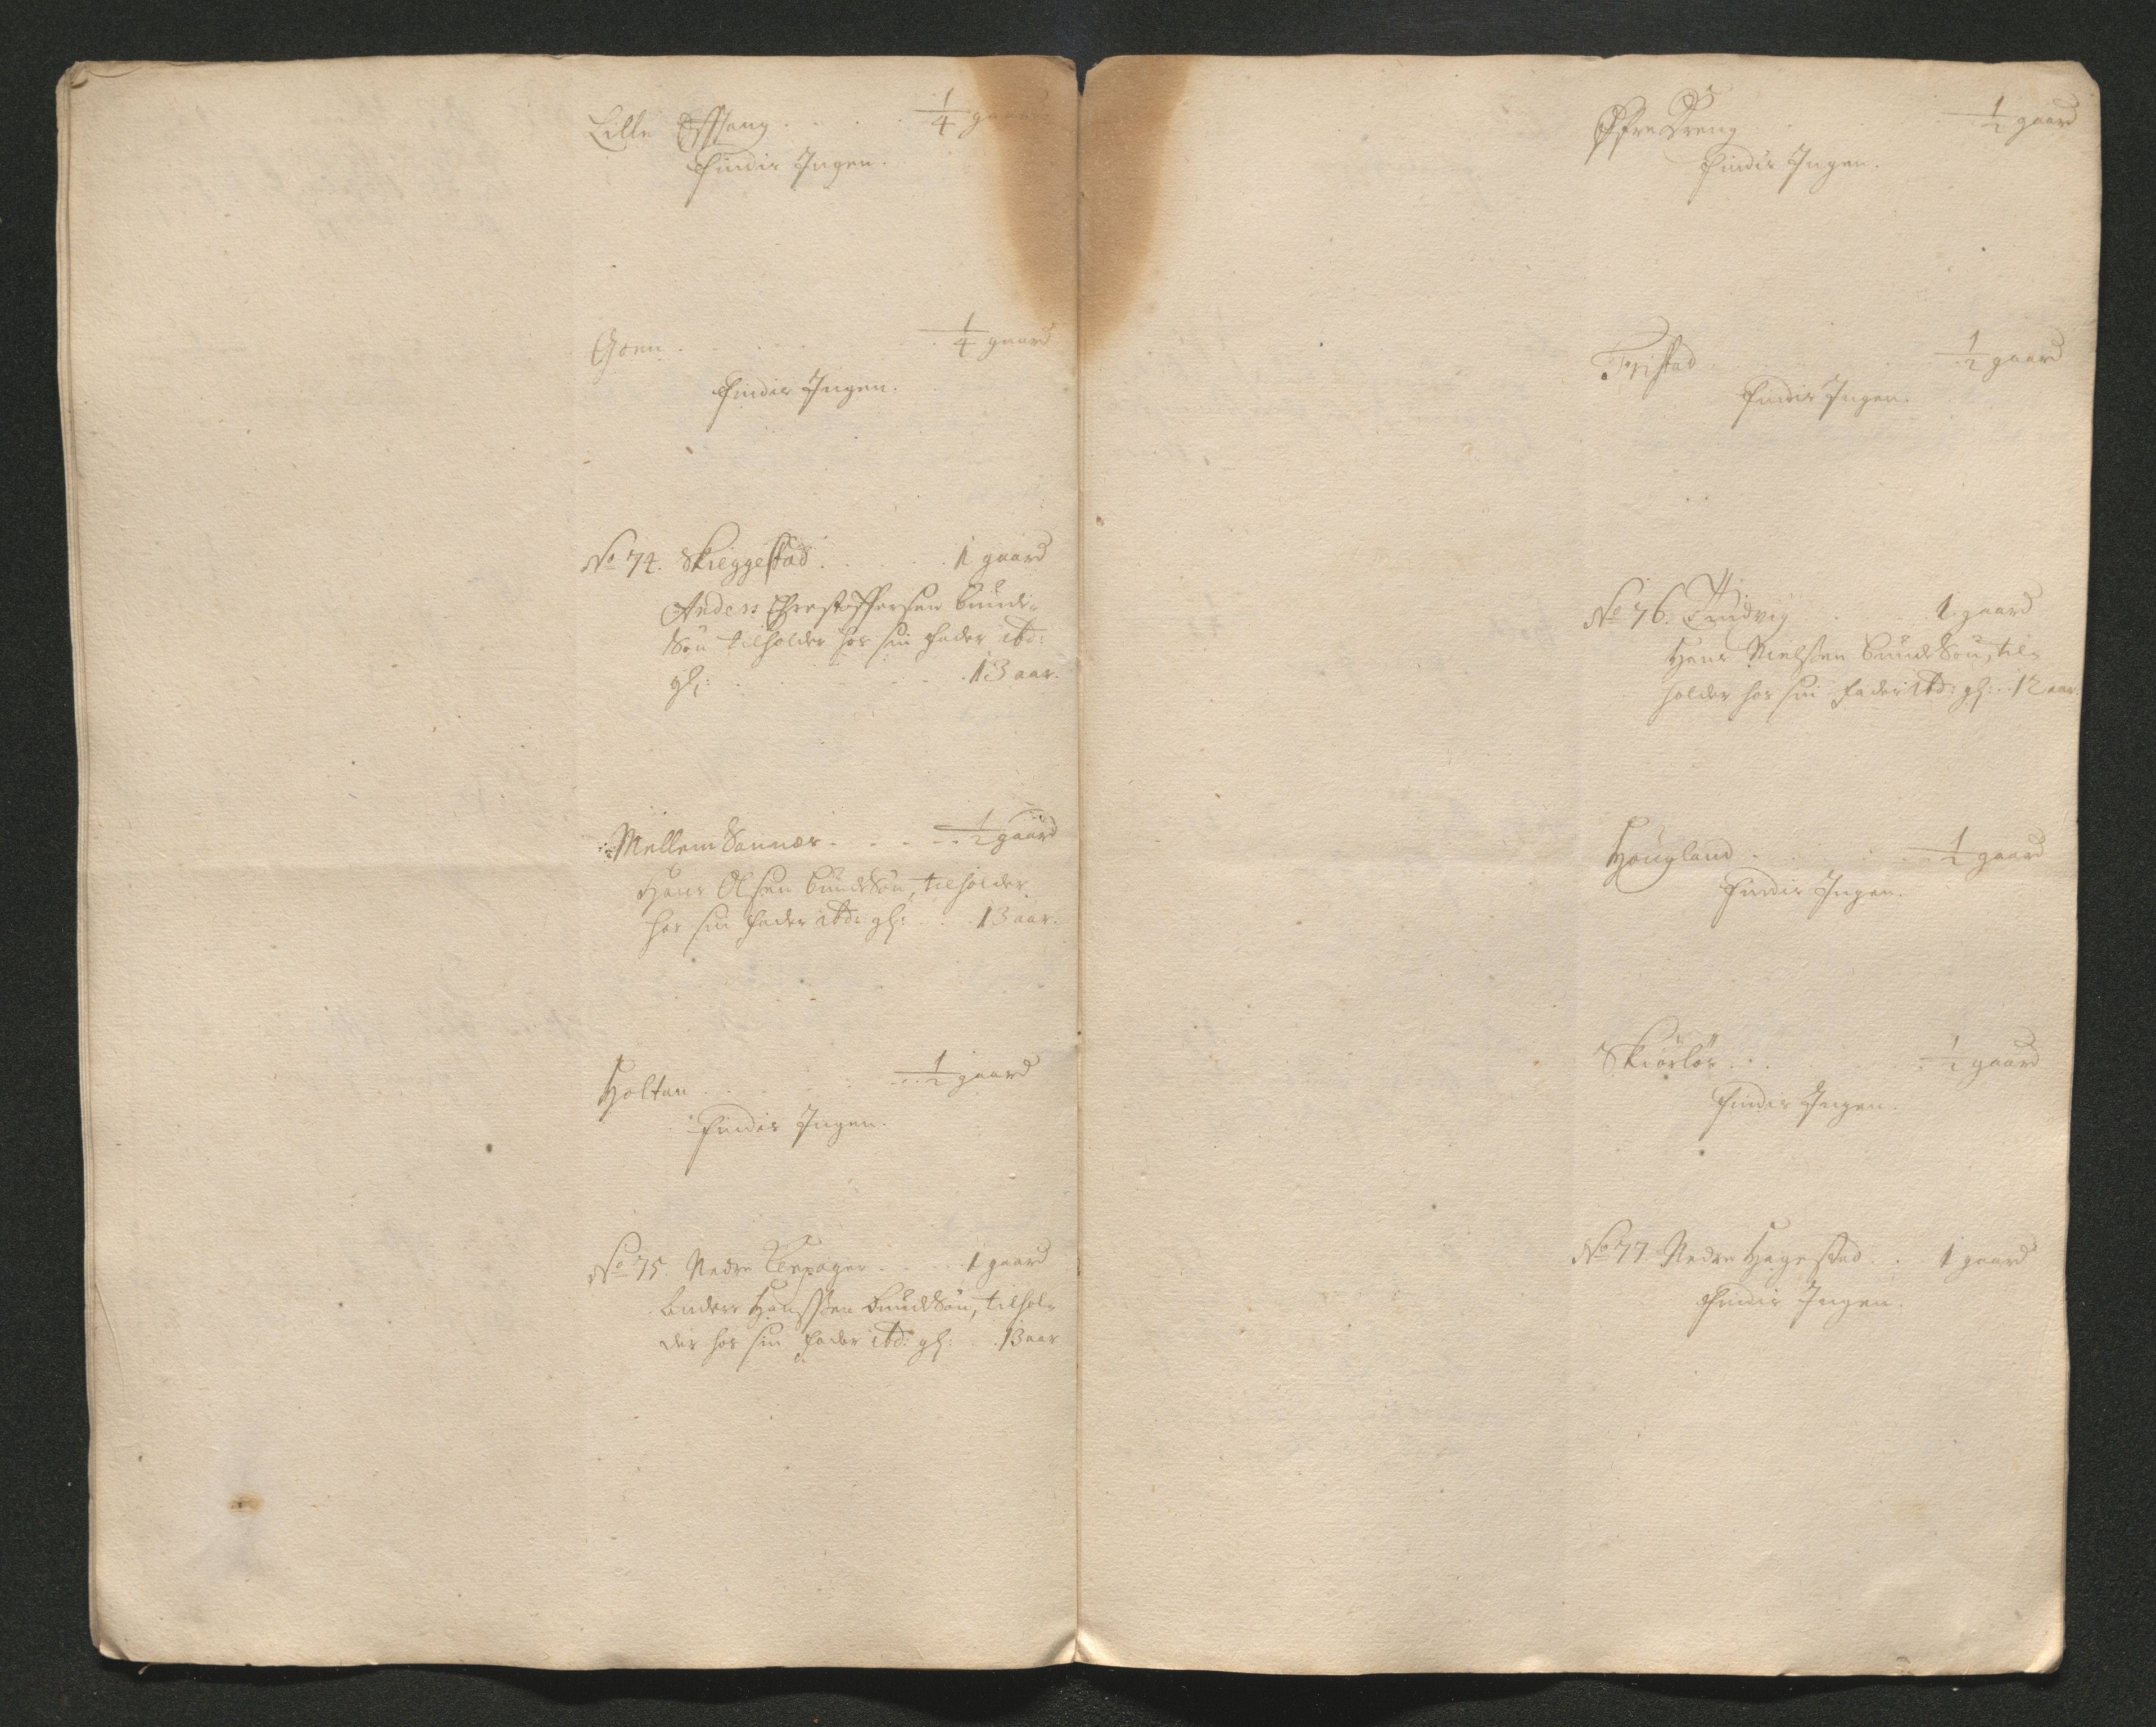 Lille . . . . . 1/4 gaard
Findis Ingen.
Goen . . . . . . 1/4 gaard
Findis Ingen.
No 74. Skieggestad . . . . . 1 gaard
Anders Christoffersen bunde-
Søn tilholder hos sin fader ibd:
gl: . . . . . . 13 aar.
Mellem Sannes . . . . . 1/2 gaard
Hans Olsen bundesøn, tilholder
hos sin fader ibd: gl: . . . 13 aar.
Holtan . . . . . . 1/2 gaard
Findis Ingen.
No 75. Nedre . . . . 1 gaard
Anders Hanssen bundesøn, tilhol-
der hos sin fader ibd: gl: . . 13 aar
Øfre Breng . . . 1/2 gaard
Findis Ingen.
Fristad . . . . . 1/2 gaard
Findis Ingen.
No 76. Trudvig . . . . 1 gaard
Hans Nielsen bundesøn, til-
holder hos sin fader ibd: gl: . 12 aar.
Hougland . . . . . 1/2 gaard
Findis Ingen.
Skiörlös . . . . . . 1/2 gaard
Findis Ingen.
No 77. Nedre Hagestad . . 1 gaard
Findis Ingen.